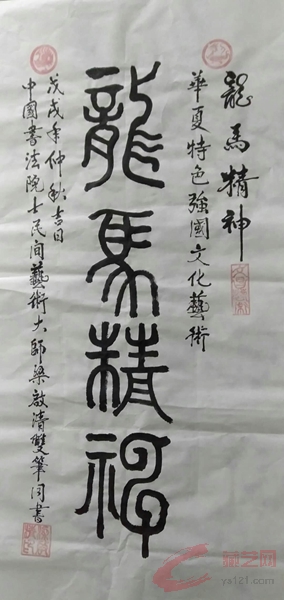 龍馬精神
華夏特色強國文化藝術
龍馬精神
戊戌年仲秋吉日
中國書法院士民間藝術大師梁啟清雙筆同書
ya121.com